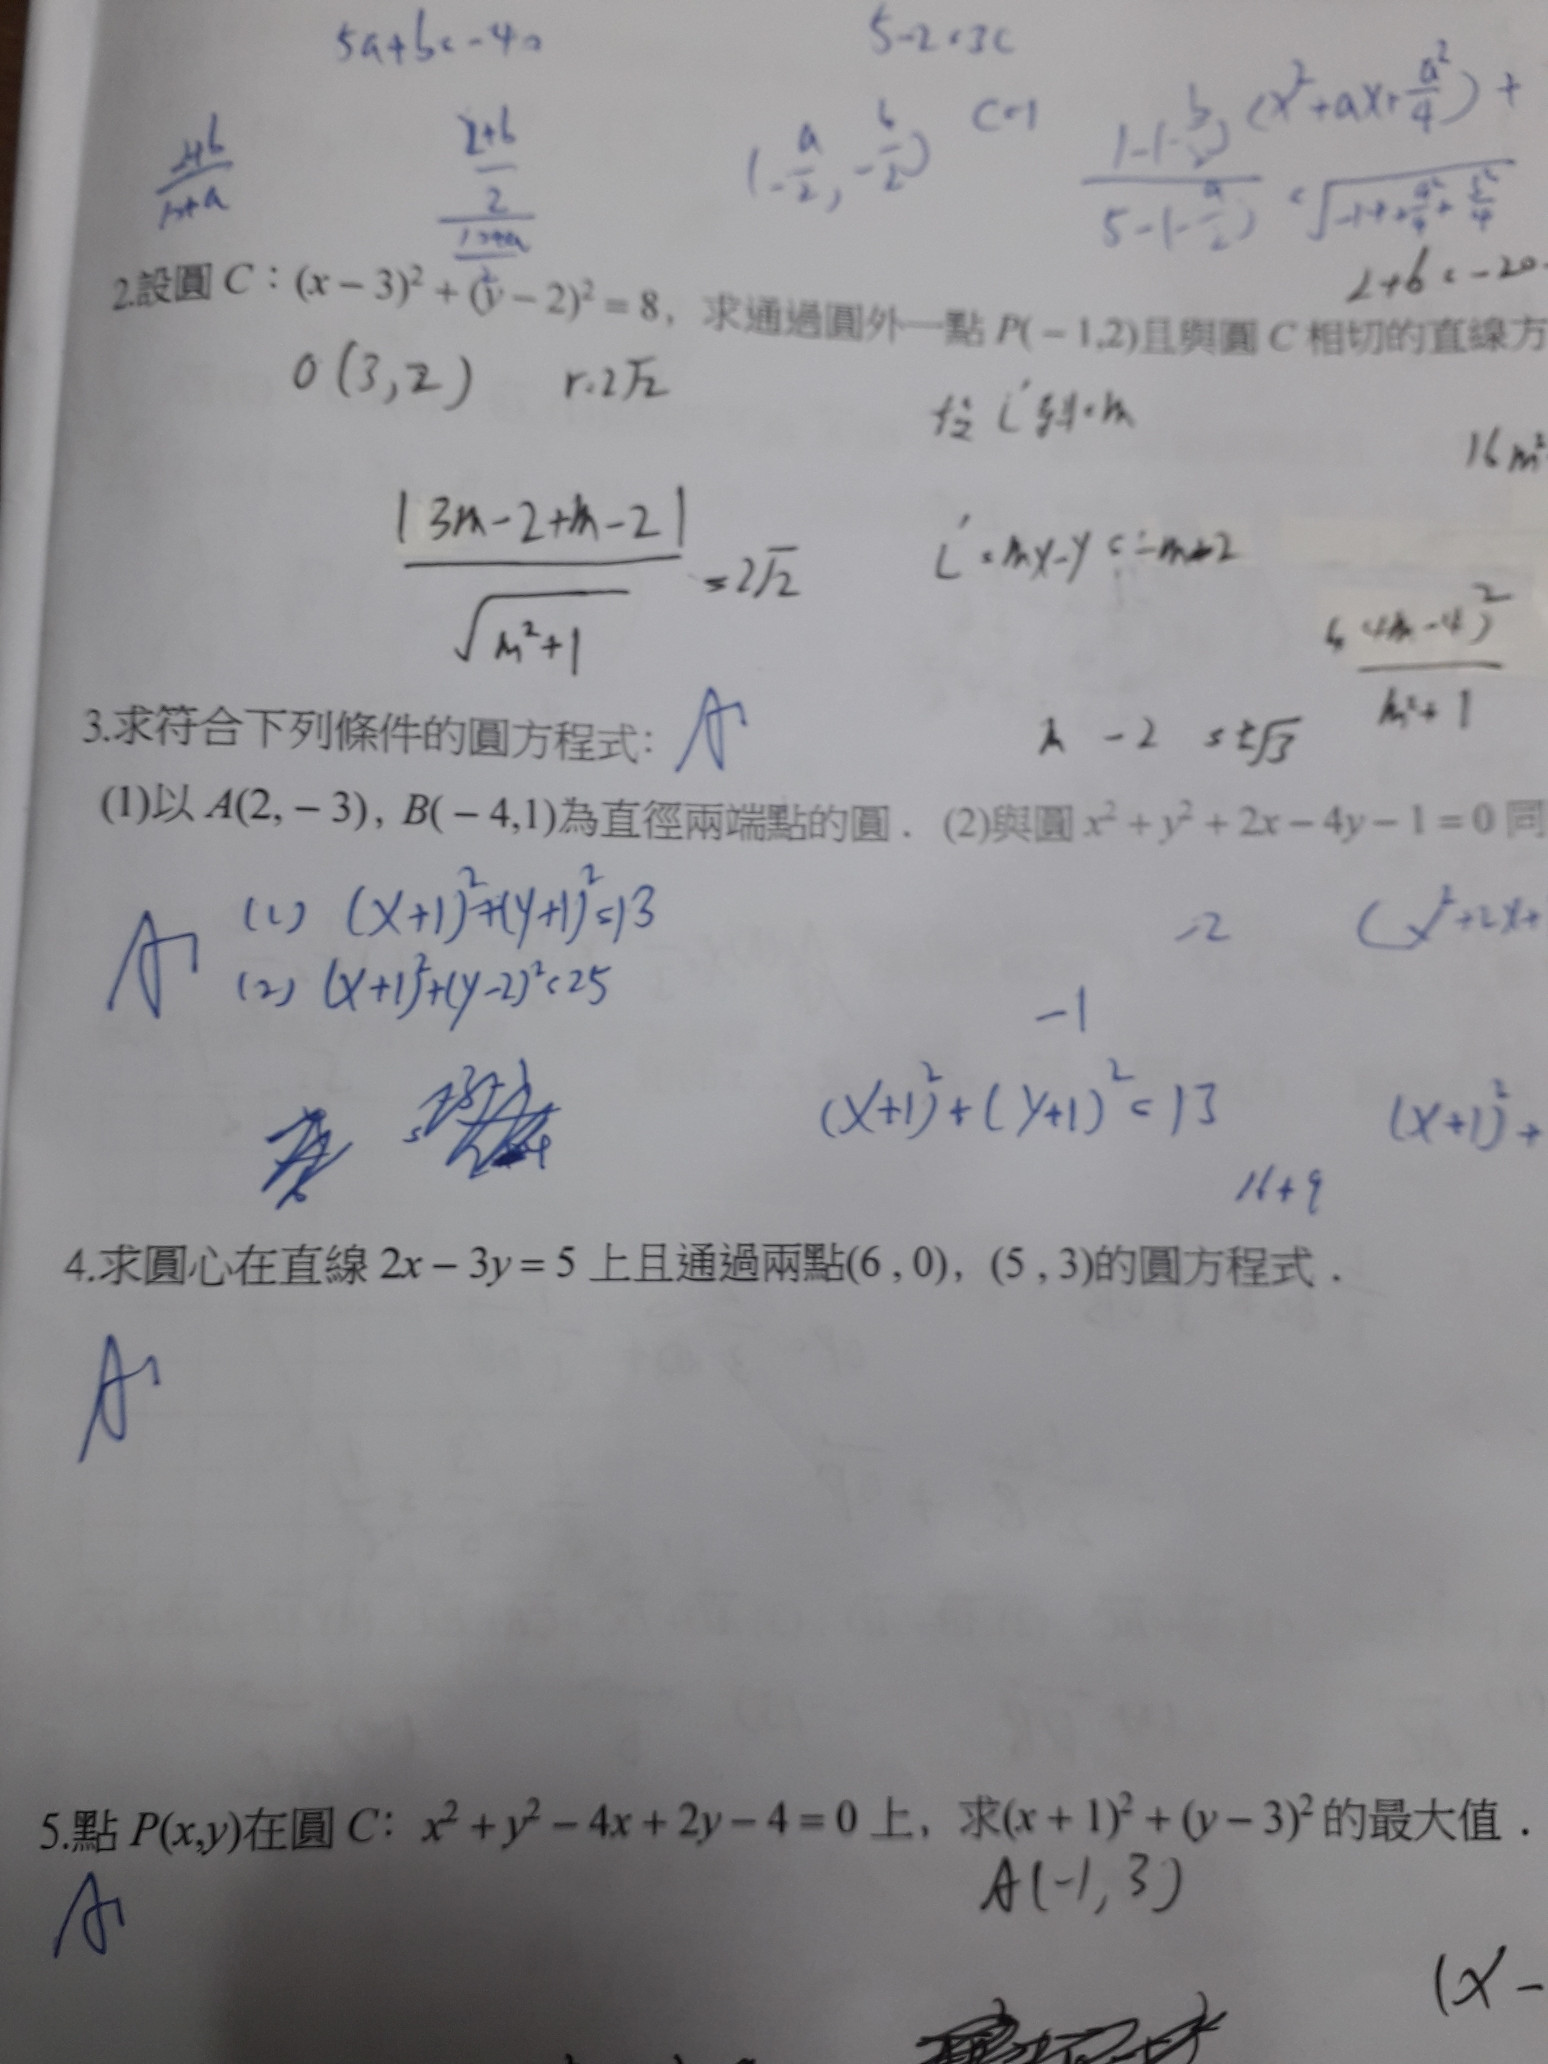 5a+b=-40
5-2=3C
2+b
12+a
2+b
2
12+a
2
(-a/2, -b/2)
C=1
1-(-b/2)
5-(-a/2)
(x²+ax+a²/4)+
2+b=-20
2.設圓 C：(x－3)²＋(y－2)²＝8，求通過圓外一點 P(－1,2)且與圓 C 相切的直線方
O(3,2) r=2√2
L'斜=m
16m²
|3m-2+m-2|
√m²+1
=2√2
L'=mx-y=-m+2
(4m-4)²
m²+1
3.求符合下列條件的圓方程式：
m -2 ±√3
(1)以 A(2,－3)，B(－4,1)為直徑兩端點的圓． (2)與圓 x²＋y²＋2x－4y－1＝0 同
A:
(1) (x+1)²+(y+1)²=13
-2
(x²+2x+
(2) (x+1)²+(y-2)²=25
-1
(x+1)²+(y+1)²=13
(x+1)²+
16+9
4.求圓心在直線 2x－3y＝5 上且通過兩點(6 , 0)，(5 , 3)的圓方程式．
A:
5.點 P(x,y)在圓 C：x²＋y²－4x＋2y－4＝0 上，求(x＋1)²＋(y－3)²的最大值．
A(-1,3)
A:
(x-